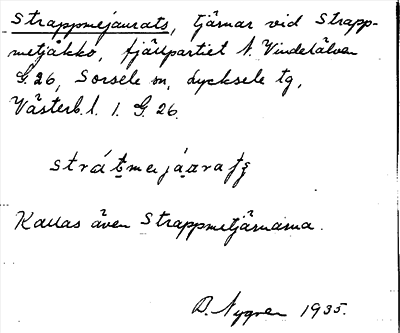 Strappmejaurats, tjärnar vid Strapp-
metjåkko, fjällpartiet N. Vindelälven
G.26, Sorsele sn, Lycksele tg,
Västerb.l. 1. G. 26.
Kallas även Strappmetjärnarna.
D. Nygren 1935.